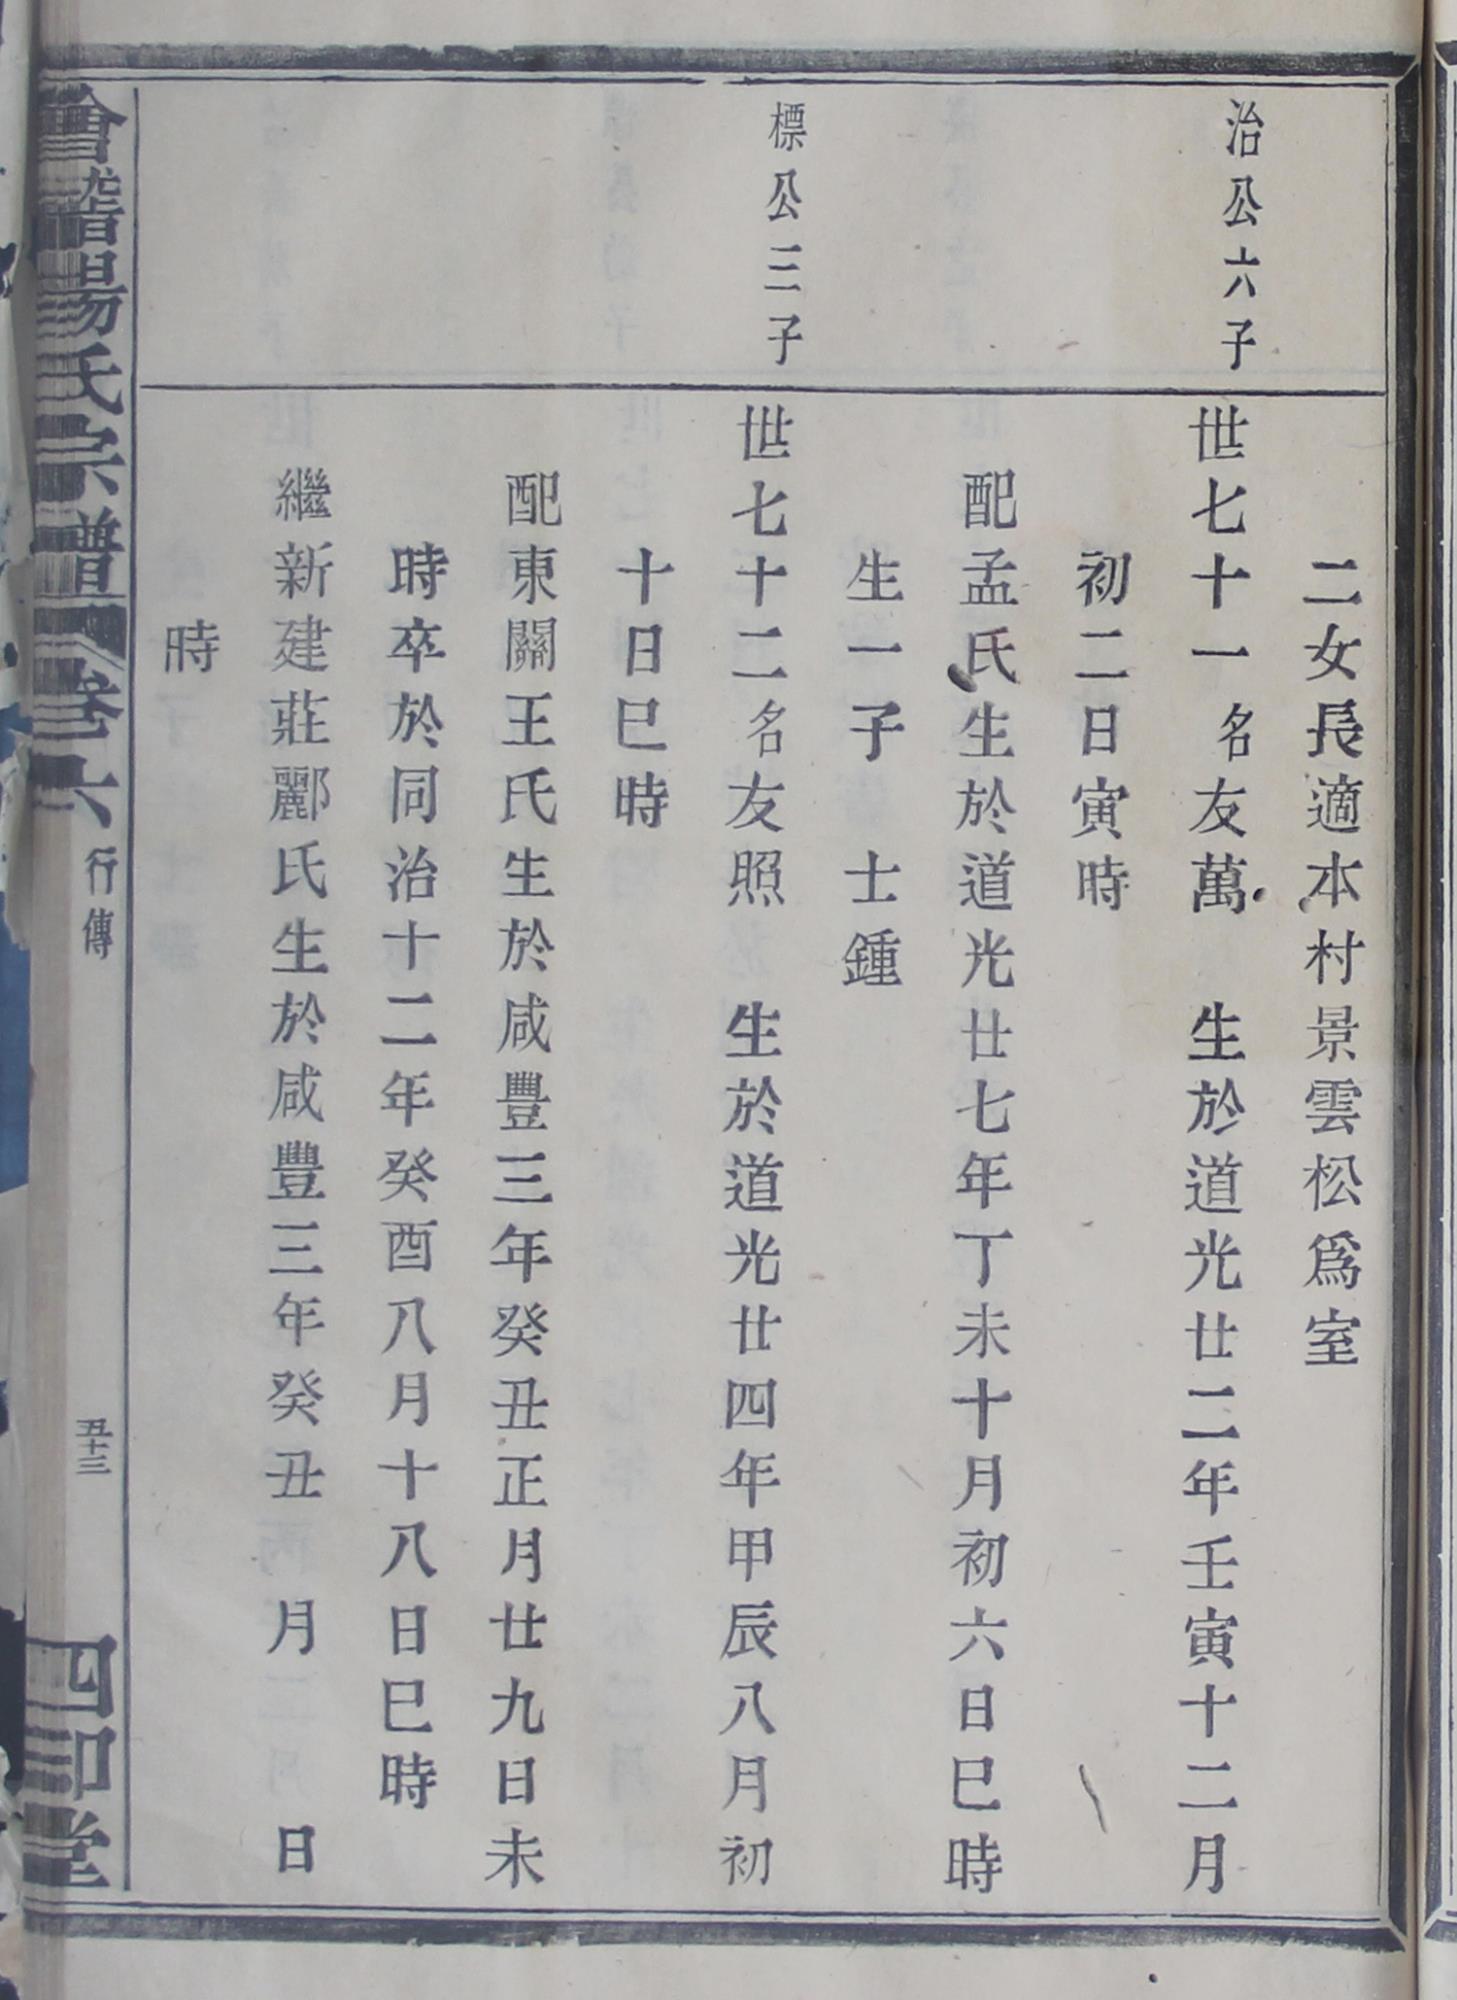 二女長適本村景雲松爲室
治公六子
世七十一名友萬　生於道光廿二年壬寅十二月
初二日寅時
配孟氏生於道光廿七年丁未十月初六日巳時
生一子　士鍾
標公三子
世七十二名友照　生於道光廿四年甲辰八月初
十日巳時
配東關王氏生於咸豐三年癸丑正月廿九日未
時卒於同治十二年癸酉八月十八日巳時
繼新建莊酈氏生於咸豐三年癸丑　月　　日
時
會稽昜氏宗譜　卷六　行傳　五十三　四印堂